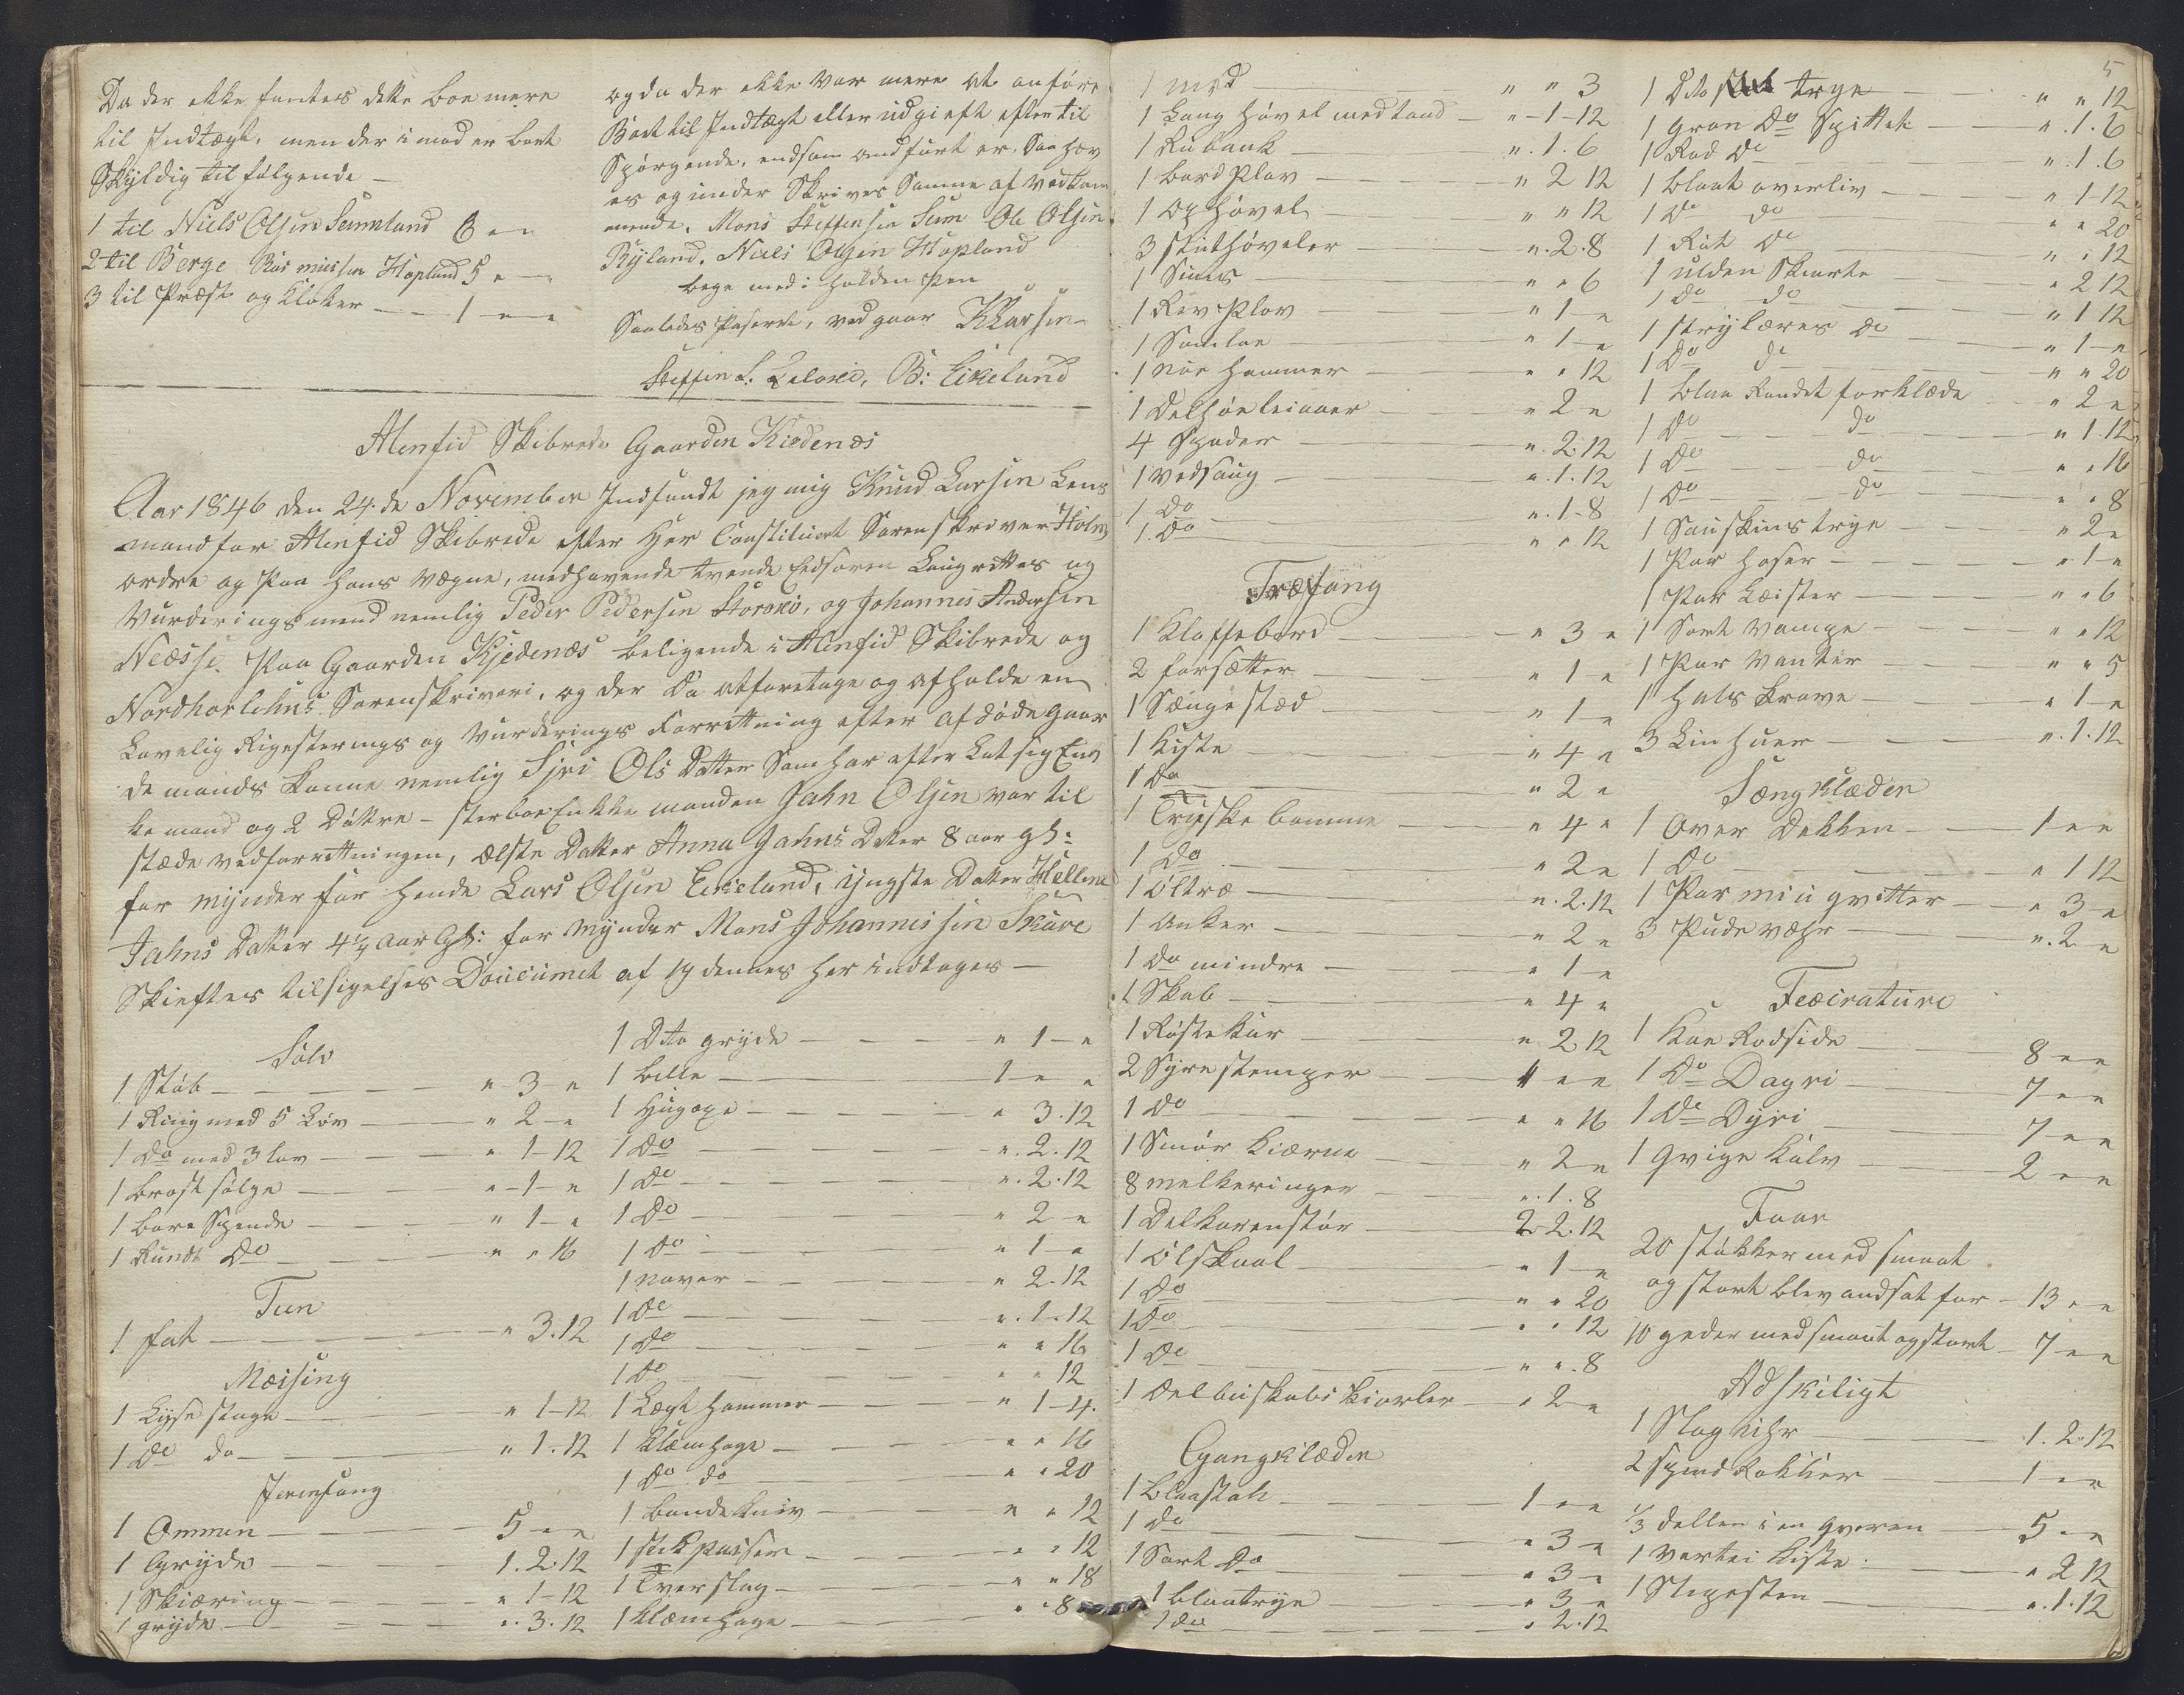 Da der ikke fantes dette boe mere
til Indtægt, men der i mod er bort
Skyldig til følgende —
1 til Niels Olsen Seimland 6 " "
2 til Berge Rasmussen Hopland 5 " "
3 til Præst og Kloker — 1 " "
og da der ikke var mere at anføre
Bort til Indtægt eller udgieft efter til
Spørgende, endsom andført er. Saa hæv
es og under Skrives Samme af vedkom
mende. Mons Steffensen Seim Ole Olsen
Ryland. Niels Olsen Hopland
bege med i holden Pen
Saaledes Paserede, vedgaar K Larsen
Steffen S. B: Eikeland
Alenfid Skibrede Gaarden Kiedenæs
Aar 1846 den 24de November Indfandt jeg mig Knud Larsen Lens
mand for Alenfid Skibrede efter Her Constitueret Sorenskriver Holm
ordre og Paa Hans vægne, medhavende tvende Eedsoren Laugrettes og
Vurderings mend nemlig Peder Pedersen Storoxø, og Johannes Andersen
Neæsse. Paa Gaarden Kjedenæs beligende i Alenfid Skibrede og
Nordhorlehns Sorenskriveri, og der Da atforetage og afholde en
Lovelig Rigesterings og Vurderings Forretning efter afdøde gaar
de mands konne nemlig Siri Ols Datter Som har efter Lat sig Enn
ke mand og 2 Døttre - sterboe Enkke manden Jahn Olsen var til
stæde ved forretningen, ælste Datter Anna Jahns Datter 8 aar gl:
for mynder for hende Lars Olsen Eikeland, yngste Datter Hellene
Jahns Datter 4½ Aar Gl: for mynder Mons Johannessen Skare
Skieftes tilsigelses Doucumet af 19 dennes her indtages —
Sølv
1 Støb — " 3 "
1 Ring med 5 Løv — " 2 "
1 Do med 3 lov — " 1-12
1 brøst sølge — " 1 "
1 bore Spende — " 1 "
1 Rundt Do — " " 16
Tin
1 fat — " 3.12
Meising
1 Lyse stage — " 1-12
1 Do do — " 1.12
Jernfang
1 Ommen — 5 " "
1 Gryde — 1.2.12
1 Skiæring — " 1-12
1 gryde — " 3.12
1 Dito gryde — " 1 "
1 bille — 1 " "
1 Hugoxe — " 3.12
1 Do — " 2.12
1 Do — " 2.12
1 Do — " 2 "
1 Do — " 1 "
1 naver — " 2.12
1 Do — " 1.12
1 Do — " " 16
1 Do — " " 12
1 Lægt Hammer — " 1-4.
1 Klæmhage — " " 16
1 Do do — " " 20
1 bandekniv — " " 12
1 stik passer — " " 12
1 Tverslag — " " 18
1 Klæmhage — " " 8
5
1 med — " " 3
1 Lang Høvel med tand — " 1-12
1 Rubank — " 1.6
1 bord Plov — " 2 12
1 Op høvel — " " 12
3 slethøveler — " 2.8
1 Sims — " " 6
1 Rev Plov — " 1 "
1 Samlae — " 1 "
1 nøe Hammer — " " 12
1 — " 2 "
4 Spader — " 2.12
1 Vedsaug — " 1.12
1 Do — " 1-8
1 Do — " " 12
Træfang
1 Klaffebord — " 3 "
2 forsætter — " 1 "
1 Sængestæd — " 1 "
1 Kiste — " 4 "
1 Do — " 2 "
1 bomme — " 4 "
1 Do — " 2 "
1 øltræ — " 2.12
1 Anker — " 2 "
1 Do mindre — " 1 "
1 Skab — " 4 "
1 Røstekar — " 2 12
2 Syrestemper — 1 " "
1 Do — " " 16
1 Smør Kiærne — " 2 "
8 melkeringer — " 1.8
1 — 2 2.12
1 Ølskaal — " 1 "
1 Do — " " 20
1 Do — " " 12
1 Do — " " 8
1 Del buskabs kiørler — " 2 "
Gangklæder
1 blaastak — 1 " "
1 do — " 3 "
1 Sort Do — " 3 "
1 blaatrye — " 3 "
1 do — " 2.12
1 Dito trye — " " 12
1 Grøn Do — " 1.6
1 Rød Do — " 1.6
1 blaat overliv — " 1-12
1 Do do — " " 20
1 Rut Do — " " 12
1 ulden Skiorte — " 2 12
1 Do do — " 1 12
1 strylæres Do — " 1 "
1 Do do — " " 20
1 blaa Randet forklæde " 2 "
1 Do do — " 1.12
1 Do do — " " 16
1 Do do — " " 8
1 Sauskins trye — " 2 "
1 Par Hoser — " 1 "
1 Par Leister — " " 6
1 Sort vampe — " " 12
1 Par Vanter — " " 5
1 Hals krave — " 1 "
3 Linhuer — " 1.12
Sængklæder
1 Over Dekken — 1 " "
1 Do — " 1 12
1 Par — " 3 "
3 Pude væhr — " 2 "
Feæirature
1 Kue Rodside — 8 " "
1 Do Dagri — 7 " "
1 Do Dyri — 7 " "
1 Qvige Kalv — 2 " "
Faar
20 støkker med smaat
og stort blev andsat for — 13 " "
10 geder med smaat og stort — 7 " "
Adskiligt
1 Slag uhr — 1.2.12
2 Spind Rokker — 1 " "
1/3 dellen i en Qværn — 5 " "
1 Kiste — " 2 12
1 Slepesten — " 1.12